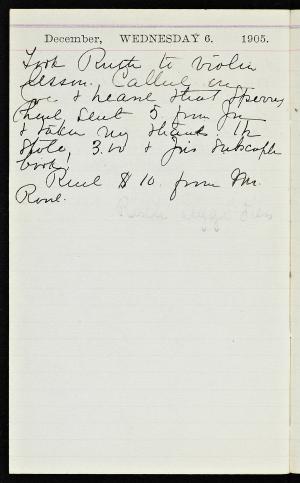 December, WEDNESDAY 6. 1905.
Took Ruth to violin
lesson. Called on
Joe & heard that Sperry
had sent 5 from Jn
& taken my
Stole 3.00 & Jns Subscrptn
book!
Recd $10. from Mr.
Rowe.